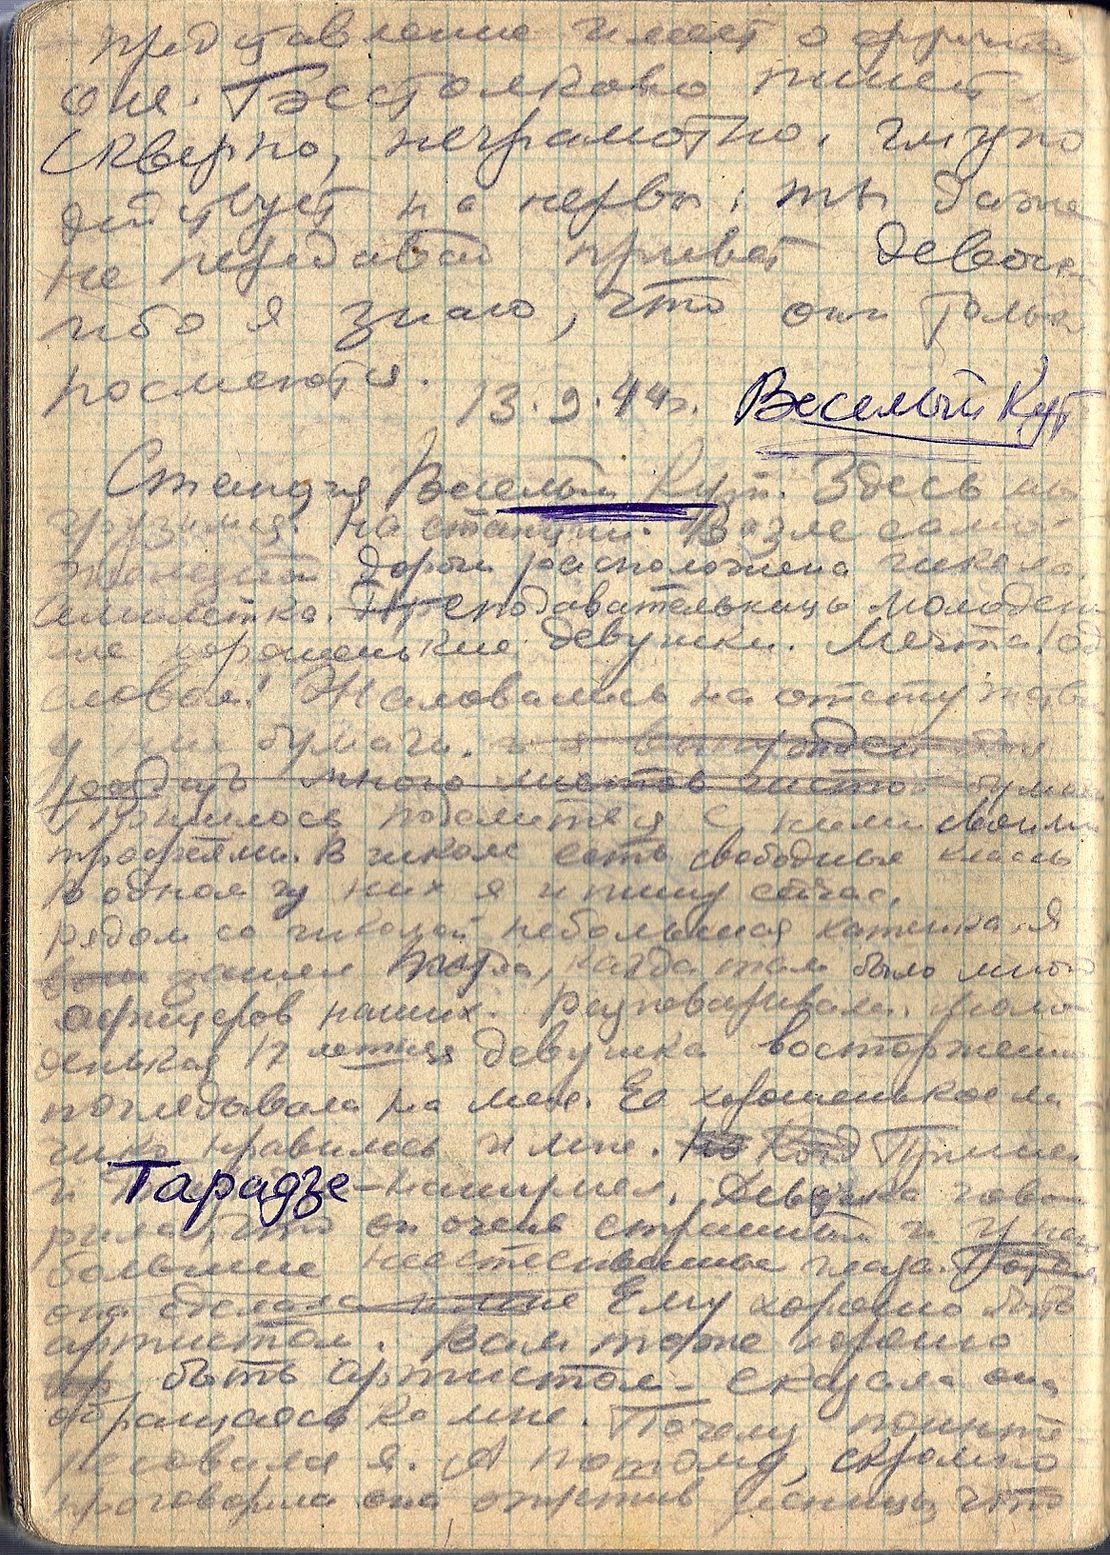 представление имеет о фронта
оне. Бестолково пишет
скверно, неграмотно, глупо
действует на нервы. ты даже
не передавай привет девочк
ибо я знаю, что они только
посмеются.
13.9.44г. Веселый Кут
Станция Веселый Кут. Здесь мы
грузимся. На станции. Возле самой
железной дороги расположена школа
семилетка. Преподавательницы молодень
кие хорошенькие девушки. Мечта! од
словом! Жаловались на отсутстви
у них бумаги. и я
много листов чистой бумаги
Пришлось поделиться с ними своими
трофеями. В школе есть свободные классы
В одном из них я и пишу сейчас.
рядом со школой небольшая хатенка. Я
зашел туда, когда там было много
офицеров наших. Разговаривали. Моло
денькая 17 летняя девушка восторженно
поглядывала на меня. Ее хорошенькое ли
чико нравилось и мне. Но Когд Пришел
и Тарадзе – кашгрмел. Девушка гово
рила, что он очень страшный и у него
большие неестественные глаза. Потом
она сделала Ему хорошо быть
артистом. Вам тоже хорошо
быть артистом – сказала она
обращаясь ко мне. Почему поинте
ресовался я. А потому, скромно
проговорила она опустив ресницы, что